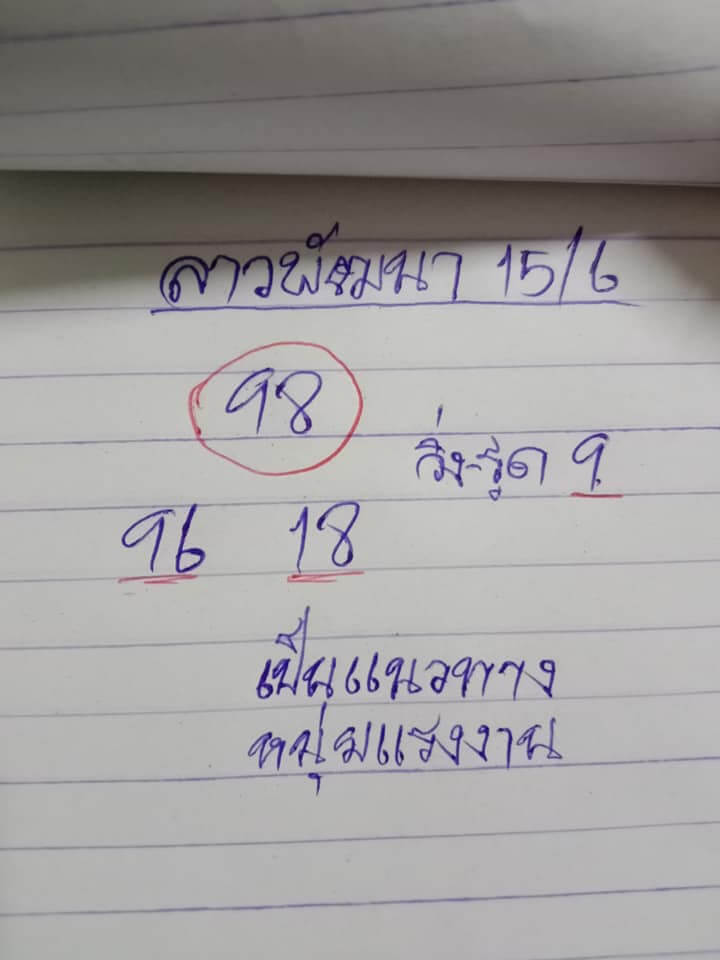 ลาวพัฒนา 15/6
98
วิ่ง-รูด 9
96 18
เป็นแนวทาง
หนุ่มแรงงาน